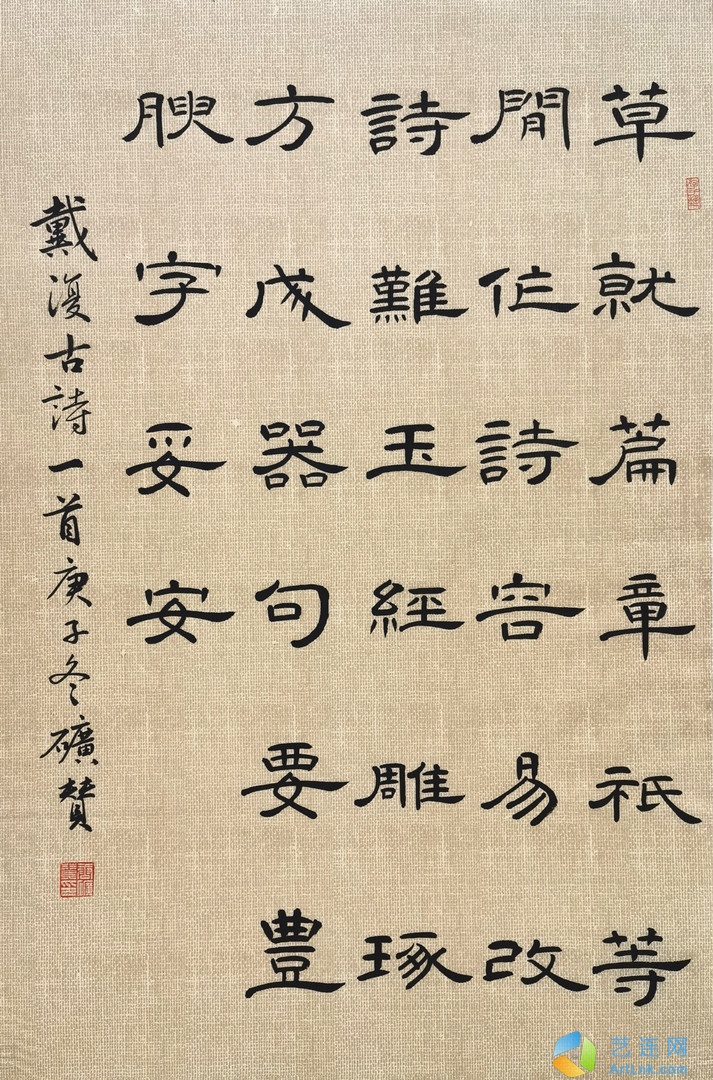 草就篇章祇等
閒作詩容易改
詩難玉經雕琢
方成器句要豐
腴字妥安
戴復古詩一首庚子冬礦賛
艺连网
ArtLink.com